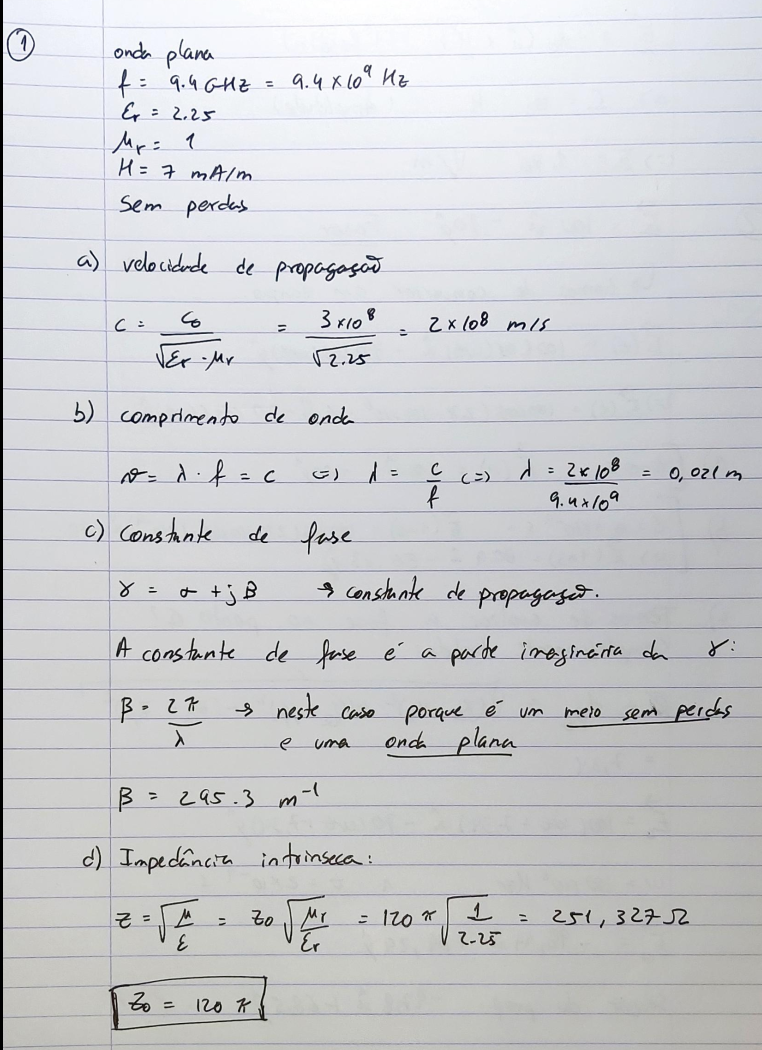 1
onda plana
f = 9.4 GHz = 9.4 × 10⁹ Hz
εr = 2.25
μr = 1
H = 7 mA/m
Sem perdas
a) velocidade de propagação
c = c₀ / √(εr · μr) = 3×10⁸ / √2.25 = 2×10⁸ m/s
b) comprimento de onda
v = λ · f = c <=> λ = c/f <=> λ = 2×10⁸ / 9.4×10⁹ = 0,021 m
c) Constante de fase
γ = α + jβ → constante de propagação.
A constante de fase é a parte imaginária da γ:
β = 2π/λ → neste caso porque é um meio sem perdas
e uma onda plana
β = 295.3 m⁻¹
d) Impedância intrinseca:
Z = √(μ/ε) = Z₀ √(μr/εr) = 120 π √(1/2.25) = 251,327 Ω
Z₀ = 120 π